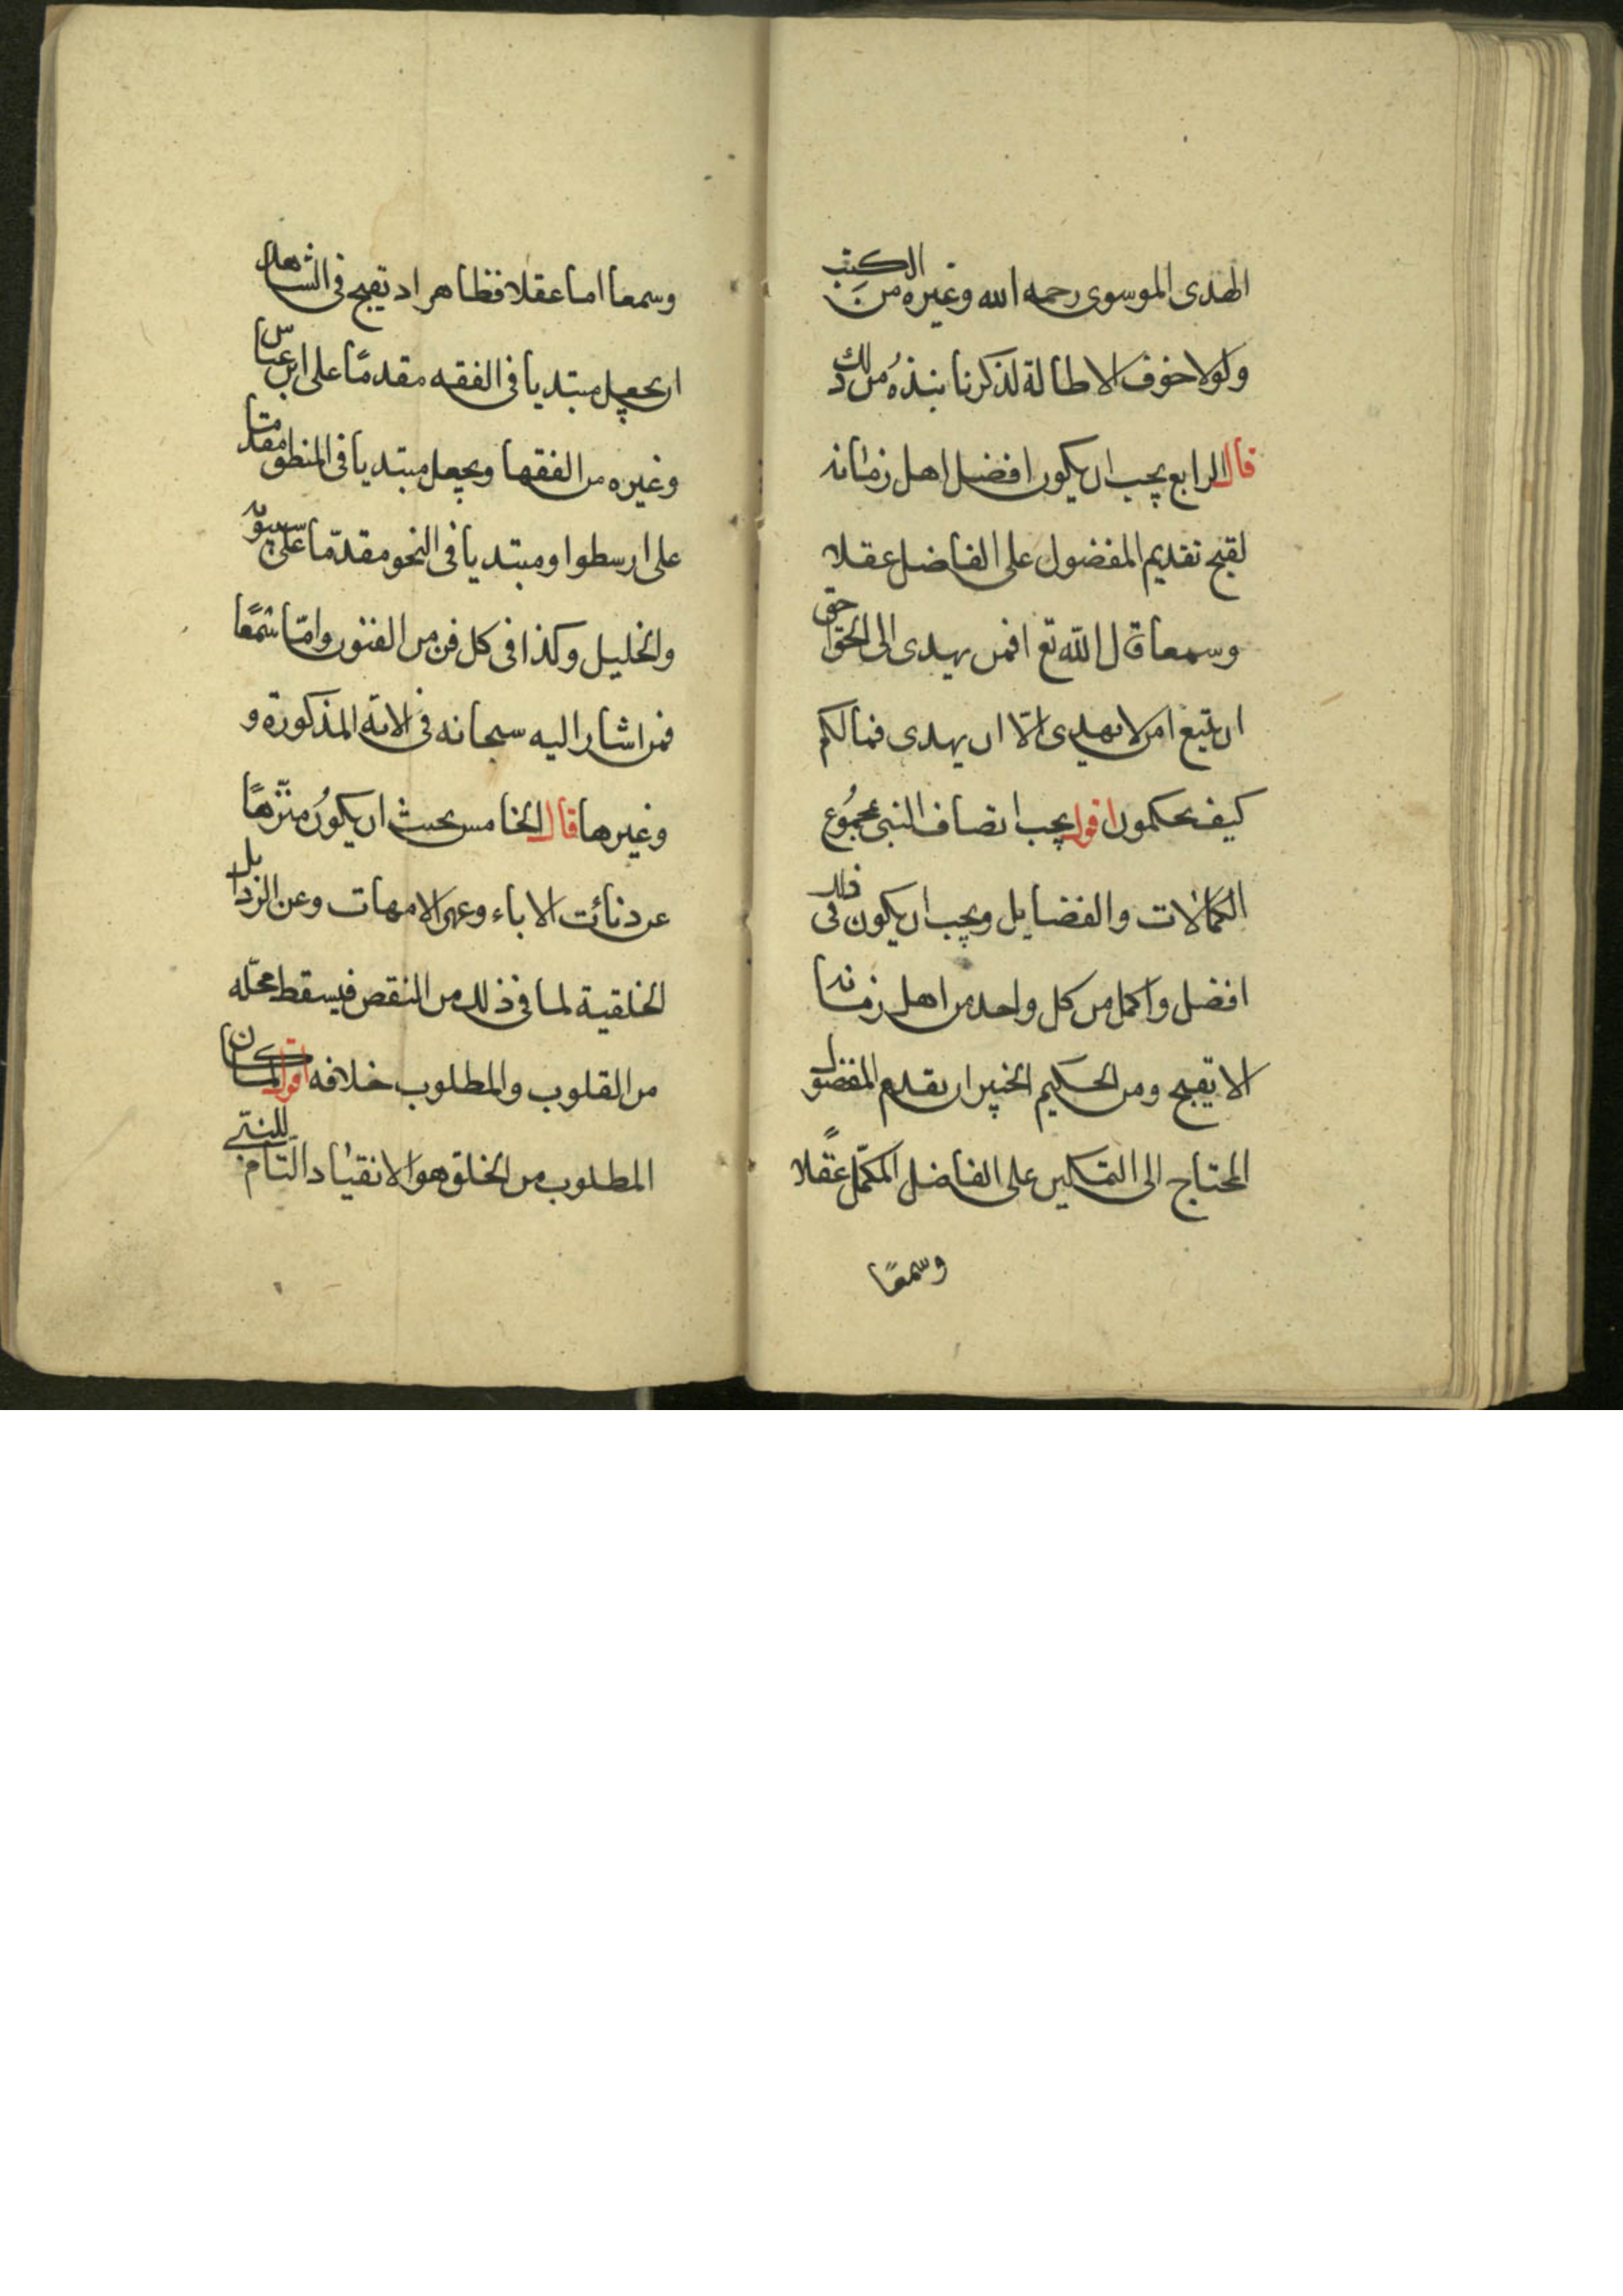 الهدى الموسوى رحمه الله وغيره من الكتب
ولولا خوف الاطالة لذكرنا نبذهُ من ذلك
قال الرابع يجب ان يكون افضل اهل زمانه
لقبح تقديم المفضول على الفاضل عقلا
وسمعا قال الله تع افمن يهدى الى الحق احق
ان يتبع امن لا يهدى الّا ان يهدى فمالكم
كيف تحكمون اقول يجب اتصاف النبى بمجمُوع
الكمالات والفضايل ويجب ان يكون فى ذلك
افضل واكمل من كل واحد من اهل زمانه
لا يقبح ومن الحكيم الخبير ان يقدم المفضول
المحتاج الى التكميل على الفاضل المكمّل عقلًا
وسمعًا
وسمعا اما عقلا فظاهر اد يقبح فى الشاهد
ان يجعل مبتديا فى الفقه مقدمًا على ابن عباس
وغيره من الفقها ويجعل مبتديا فى المنطق مقدما
على ارسطوا ومبتديا فى النحو مقدّما على سيبويه
والخليل وكذا فى كل فن من الفنون وامّا سمعًا
فمن اشار اليه سبحانه فى الايه المذكورة و
وغيرها قال الخامس يجب ان يكوُن منزّهًا
عن دنائت الاباء وعهر الامهات وعن الرذايل
الخلقية لما فى ذلك من النقص فيسقط محلّه
من القلوب والمطلوب خلافه اقول لما كان
المطلوب من الخلق هو الانقياد التّام للنبّى